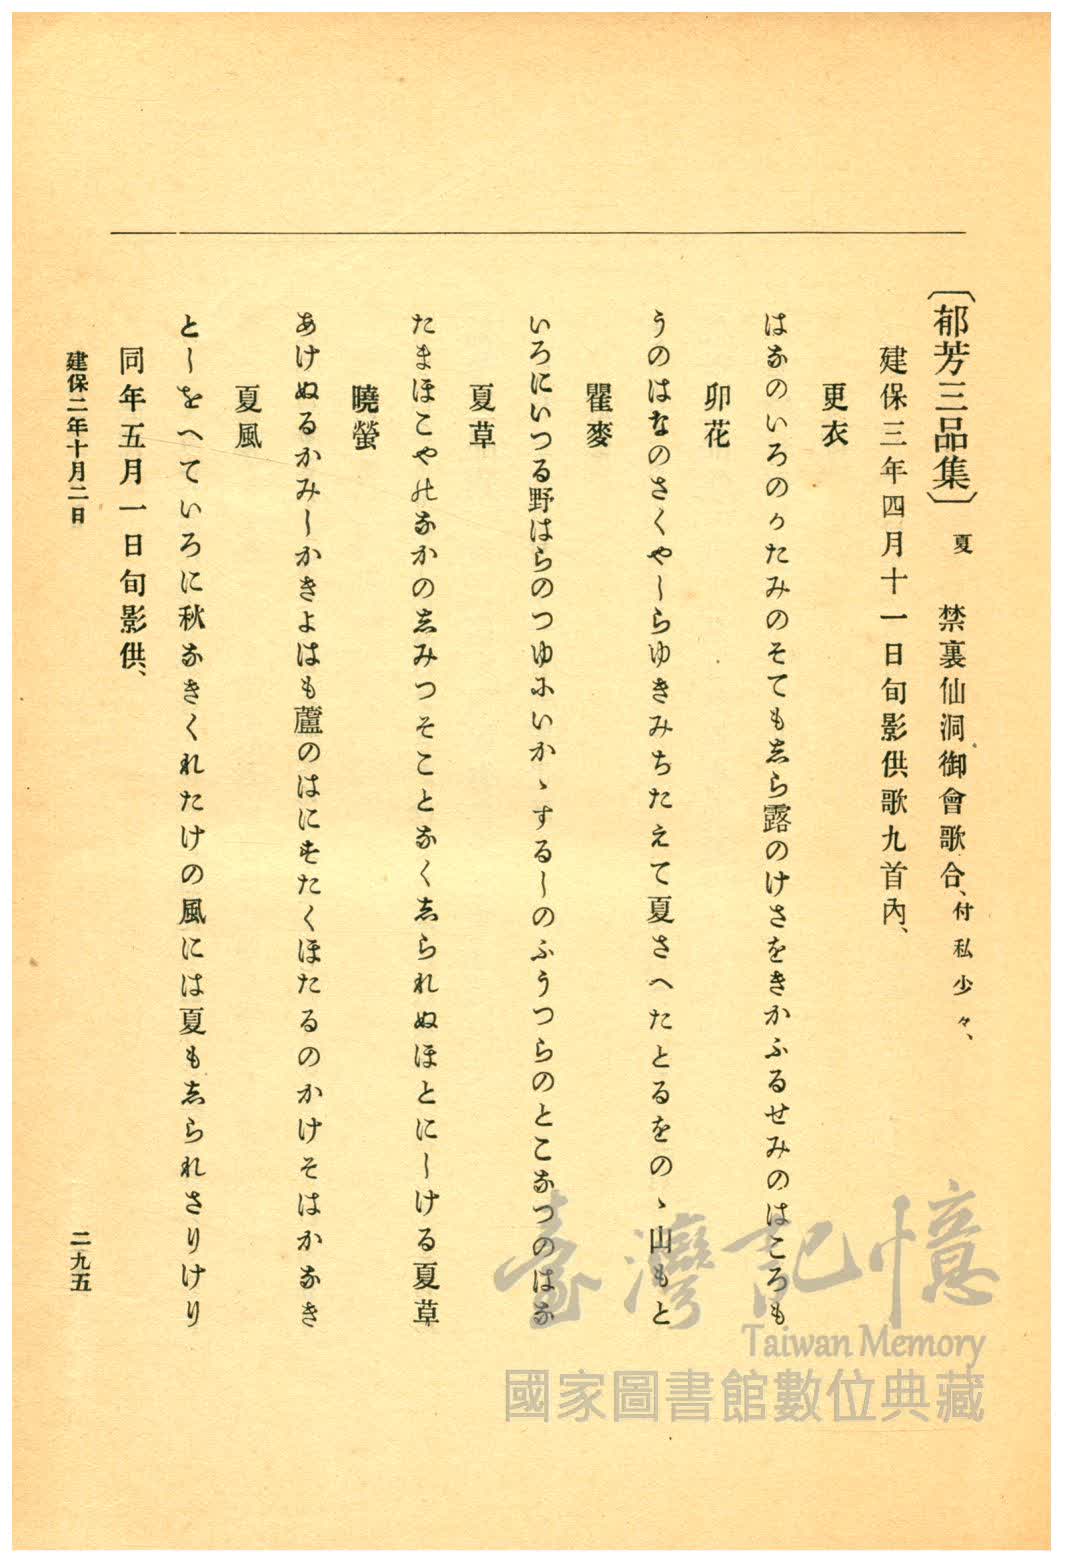 〔郁芳三品集〕 夏 禁裏仙洞御會歌合、付私少々、
建保三年四月十一日旬影供歌九首內、
更衣
はなのいろのかたみのそてもしら露のけさをきかふるせみのはころも
卯花
うのはなのさくやしらゆきみちたえて夏さへたとるをのゝ山もと
瞿麥
いろにいつる野はらのつゆにいかゝするしのふうつらのとこなつのはな
夏草
たまほこやのなかのしみつそことなくしられぬほとにしける夏草
曉螢
あけぬるかみしかきよはも蘆のはにすたくほたるのかけそはかなき
夏風
としをへていろに秋なきくれたけの風には夏もしられさりけり
同年五月一日旬影供、
建保二年十月二日
二九五
臺灣記憶
Taiwan Memory
國家圖書館數位典藏